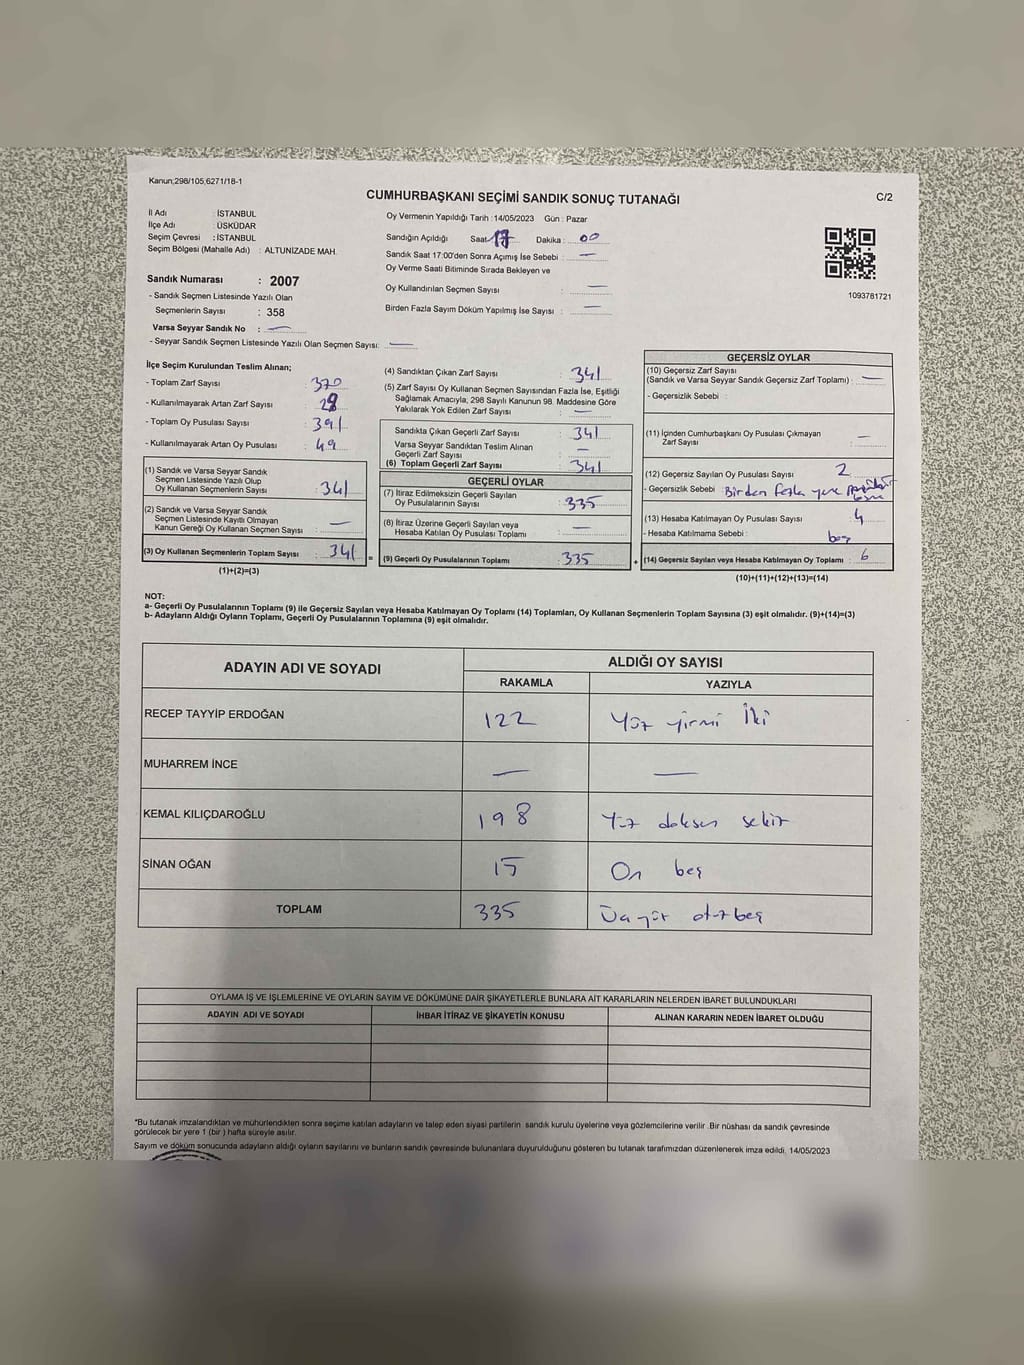 Kanun;298/105,6271/18-1
CUMHURBAŞKANI SEÇİMİ SANDIK SONUÇ TUTANAĞI
C/2
İl Adı : İSTANBUL
İlçe Adı : ÜSKÜDAR
Seçim Çevresi : İSTANBUL
Seçim Bölgesi (Mahalle Adı) : ALTUNİZADE MAH.
Sandık Numarası : 2007
- Sandık Seçmen Listesinde Yazılı Olan
Seçmenlerin Sayısı : 358
Varsa Seyyar Sandık No : —
- Seyyar Sandık Seçmen Listesinde Yazılı Olan Seçmen Sayısı: —
Oy Vermenin Yapıldığı Tarih :14/05/2023 Gün : Pazar
Sandığın Açıldığı Saat 17 Dakika : 00
Sandık Saat 17:00'den Sonra Açımış İse Sebebi : —
Oy Verme Saati Bitiminde Sırada Bekleyen ve
Oy Kullandırılan Seçmen Sayısı : —
Birden Fazla Sayım Döküm Yapılmış İse Sayısı : —
1093781721
İlçe Seçim Kurulundan Teslim Alınan;
- Toplam Zarf Sayısı : 370
- Kullanılmayarak Artan Zarf Sayısı : 29
- Toplam Oy Pusulası Sayısı : 391
- Kullanılmayarak Artan Oy Pusulası : 49
(1) Sandık ve Varsa Seyyar Sandık
Seçmen Listesinde Yazılı Olup
Oy Kullanan Seçmenlerin Sayısı : 341
(2) Sandık ve Varsa Seyyar Sandık
Seçmen Listesinde Kayıtlı Olmayan
Kanun Gereği Oy Kullanan Seçmen Sayısı : —
(3) Oy Kullanan Seçmenlerin Toplam Sayısı : 341 =
(1)+(2)=(3)
(4) Sandıktan Çıkan Zarf Sayısı : 341
(5) Zarf Sayısı Oy Kullanan Seçmen Sayısından Fazla İse, Eşitliği
Sağlamak Amacıyla, 298 Sayılı Kanunun 98. Maddesine Göre
Yakılarak Yok Edilen Zarf Sayısı : —
Sandıkta Çıkan Geçerli Zarf Sayısı : 341
Varsa Seyyar Sandıktan Teslim Alınan
Geçerli Zarf Sayısı : —
(6) Toplam Geçerli Zarf Sayısı : 341
GEÇERLİ OYLAR
(7) İtiraz Edilmeksizin Geçerli Sayılan
Oy Pusulalarının Sayısı : 335
(8) İtiraz Üzerine Geçerli Sayılan veya
Hesaba Katılan Oy Pusulası Toplamı : —
(9) Geçerli Oy Pusulalarının Toplamı : 335 +
GEÇERSİZ OYLAR
(10) Geçersiz Zarf Sayısı
(Sandık ve Varsa Seyyar Sandık Geçersiz Zarf Toplamı) : —
- Geçersizlik Sebebi :
(11) İçinden Cumhurbaşkanı Oy Pusulası Çıkmayan
Zarf Sayısı : —
(12) Geçersiz Sayılan Oy Pusulası Sayısı : 2
- Geçersizlik Sebebi : Birden fazla yere
(13) Hesaba Katılmayan Oy Pusulası Sayısı : 4
- Hesaba Katılmama Sebebi : boş
(14) Geçersiz Sayılan veya Hesaba Katılmayan Oy Toplamı : 6
(10)+(11)+(12)+(13)=(14)
NOT:
a- Geçerli Oy Pusulalarının Toplamı (9) ile Geçersiz Sayılan veya Hesaba Katılmayan Oy Toplamı (14) Toplamları, Oy Kullanan Seçmenlerin Toplam Sayısına (3) eşit olmalıdır. (9)+(14)=(3)
b- Adayların Aldığı Oyların Toplamı, Geçerli Oy Pusulalarının Toplamına (9) eşit olmalıdır.
ADAYIN ADI VE SOYADI
ALDIĞI OY SAYISI
RAKAMLA YAZIYLA
RECEP TAYYİP ERDOĞAN 122 Yüz yirmi İki
MUHARREM İNCE — —
KEMAL KILIÇDAROĞLU 198 Yüz doksan sekiz
SİNAN OĞAN 15 On beş
TOPLAM 335 Üçyüz otuzbeş
OYLAMA İŞ VE İŞLEMLERİNE VE OYLARIN SAYIM VE DÖKÜMÜNE DAİR ŞİKAYETLERLE BUNLARA AİT KARARLARIN NELERDEN İBARET BULUNDUKLARI
ADAYIN ADI VE SOYADI İHBAR İTİRAZ VE ŞİKAYETİN KONUSU ALINAN KARARIN NEDEN İBARET OLDUĞU
*Bu tutanak imzalandıktan ve mühürlendikten sonra seçime katılan adayların ve talep eden siyasi partilerin sandık kurulu üyelerine veya gözlemcilerine verilir .Bir nüshası da sandık çevresinde
görülecek bir yere 1 (bir ) hafta süreyle asılır.
Sayım ve döküm sonucunda adayların aldığı oyların sayılarını ve bunların sandık çevresinde bulunanlara duyurulduğunu gösteren bu tutanak tarafımızdan düzenlenerek imza edildi. 14/05/2023